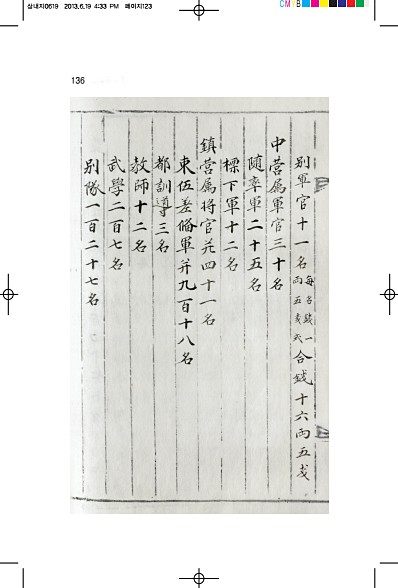 삼내지0619 2013.6.19 4:33 PM 페이지123
CMYB
136
別軍官十一名每名錢一兩五戔式合錢十六兩五戔
中營属軍官三十名
随率軍二十五名
標下軍十二名
鎮營属将官並四十一名
束伍差俻軍并九百十八名
都訓導三名
教師十二名
武學二百七名
別隊一百二十七名